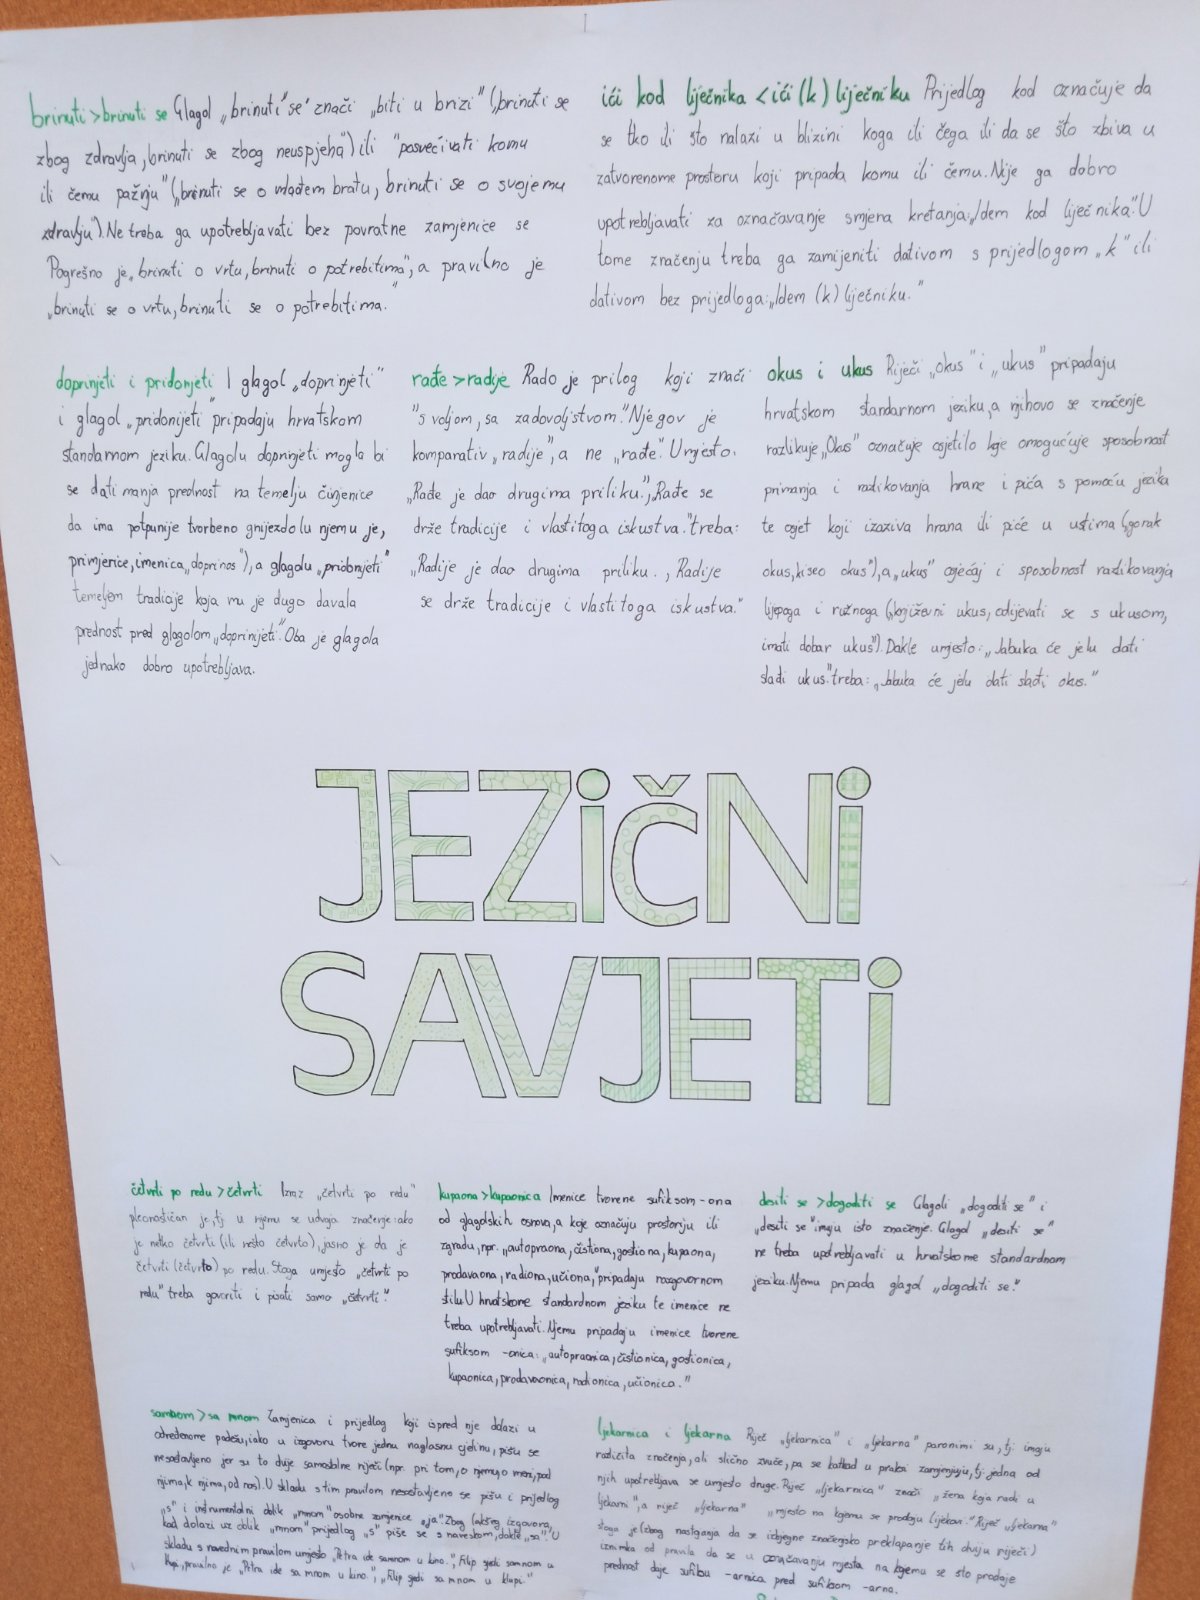 brinuti > brinuti se Glagol „brinuti se" znači „biti u brizi" („brinuti se
zbog zdravlja, brinuti se zbog neuspjeha") ili "posvećivati komu
ili čemu pažnju" („brinuti se o mlađem bratu, brinuti se o svojemu
zdravlju"). Ne treba ga upotrebljavati bez povratne zamjenice se
Pogrešno je „brinuti o vrtu, brinuti o potrebitima", a pravilno je
„brinuti se o vrtu, brinuti se o potrebitima."
ići kod liječnika < ići (k) liječniku Prijedlog kod označuje da
se tko ili što nalazi u blizini koga ili čega ili da se što zbiva u
zatvorenome prostoru koji pripada komu ili čemu. Nije ga dobro
upotrebljavati za označavanje smjena kretanja: „Idem kod liječnika." U
tome značenju treba ga zamijeniti dativom s prijedlogom „k" ili
dativom bez prijedloga: „Idem (k) liječniku."
doprinjeti i pridonjeti I glagol „doprinjeti"
i glagol „pridonijeti" pripadaju hrvatskom
standarnom jeziku. Glagolu doprinjeti mogla bi
se dati manja prednost na temelju činjenice
da ima potpunije tvorbeno gnijezdo (u njemu je,
primjerice, imenica „doprinos"), a glagolu „pridonjeti"
temeljem tradicije koja mu je dugo davala
prednost pred glagolom „doprinijeti". Oba je glagola
jednako dobro upotrebljava.
rađe > radije Rado je prilog koji znači
"s voljom, sa zadovoljstvom". Njegov je
komparativ „radije", a ne „rađe". Umjesto:
„Rađe je dao drugima priliku.", „Rađe se
drže tradicije i vlastitoga iskustva." treba:
„Radije je dao drugima priliku., Radije
se drže tradicije i vlastitoga iskustva."
okus i ukus Riječi „okus" i „ukus" pripadaju
hrvatskom standarnom jeziku, a njihovo se značenje
razlikuje. „Okus" označuje osjetilo koje omogućuje sposobnost
primanja i razlikovanja hrane i pića s pomoću jezika
te osjet koji izaziva hrana ili piće u ustima („gorak
okus, kiseo okus"), a „ukus" osjećaj i sposobnost razlikovanja
lijepoga i ružnoga („književni ukus, odijevati se s ukusom,
imati dobar ukus"). Dakle umjesto: „Jabuka će jelu dati
slađi ukus." treba: „Jabuka će jelu dati slađi okus."
JEZiČNi
SAVJETi
četvrti po redu > četvrti Izraz „četvrti po redu"
pleonastičan je, tj. u njemu se udvaja značenje: ako
je netko četvrti (ili nešto četvrto), jasno je da je
četvrti (četvrto) po redu. Stoga umjesto „četvrti po
redu" treba govoriti i pisati samo „četvrti".
kupaona > kupaonica Imenice tvorene sufiksom -ona
od glagolskih osnova, a koje označuju prostoriju ili
zgradu, npr. „autopraona, čistiona, gostiona, kupaona,
prodavaona, radiona, učiona," pripadaju razgovornom
stilu. U hrvatskome standardnom jeziku te imenice ne
treba upotrebljavati. Njemu pripadaju imenice tvorene
sufiksom -onica: „autopraonica, čistionica, gostionica,
kupaonica, prodavaonica, radionica, učionica."
desiti se > dogoditi se Glagoli „dogoditi se" i
„desiti se" imaju isto značenje. Glagol „desiti se"
ne treba upotrebljavati u hrvatskome standardnom
jeziku. Njemu pripada glagol „dogoditi se".
samnom > sa mnom Zamjenica i prijedlog koji ispred nje dolazi u
određenome padežu, iako u izgovoru tvore jednu naglasnu cjelinu, pišu se
nesastavljeno jer su to dvije samostalne riječi (npr. pri tom, o njemu, o meni, pod
njima, k njima, od nas). U skladu s tim pravilom nesastavljeno se pišu i prijedlog
„s" i instrumentalni oblik „mnom" osobne zamjenice „ja". Zbog lakšeg izgovora,
kad dolazi uz oblik „mnom" prijedlog „s" piše se s naveskom, dakle „sa". U
skladu s navednim pravilom umjesto „Petra ide samnom u kino.", „Filip sjedi samnom u
klupi., pravilno je „Petra ide sa mnom u kino.", „Filip sjedi sa mnom u klupi."
ljekarnica i ljekarna Riječ „ljekarnica" i „ljekarna" paronimi su, tj. imaju
različita značenja, ali slično zvuče, pa se katkad u praksi zamjenjuju, tj. jedna od
njih upotrebljava se umjesto druge. Riječ „ljekarnica" znači „žena koja radi u
ljekarni", a riječ „ljekarna" „mjesto na kojemu se prodaju lijekovi." Riječ „ljekarna"
stoga je (zbog nastojanja da se izbjegne značenjsko preklapanje tih dviju riječi)
iznimka od pravila da se u označavanju mjesta na kojemu se što prodaje
prednost daje sufiksu -arnica pred sufiksom -arna.